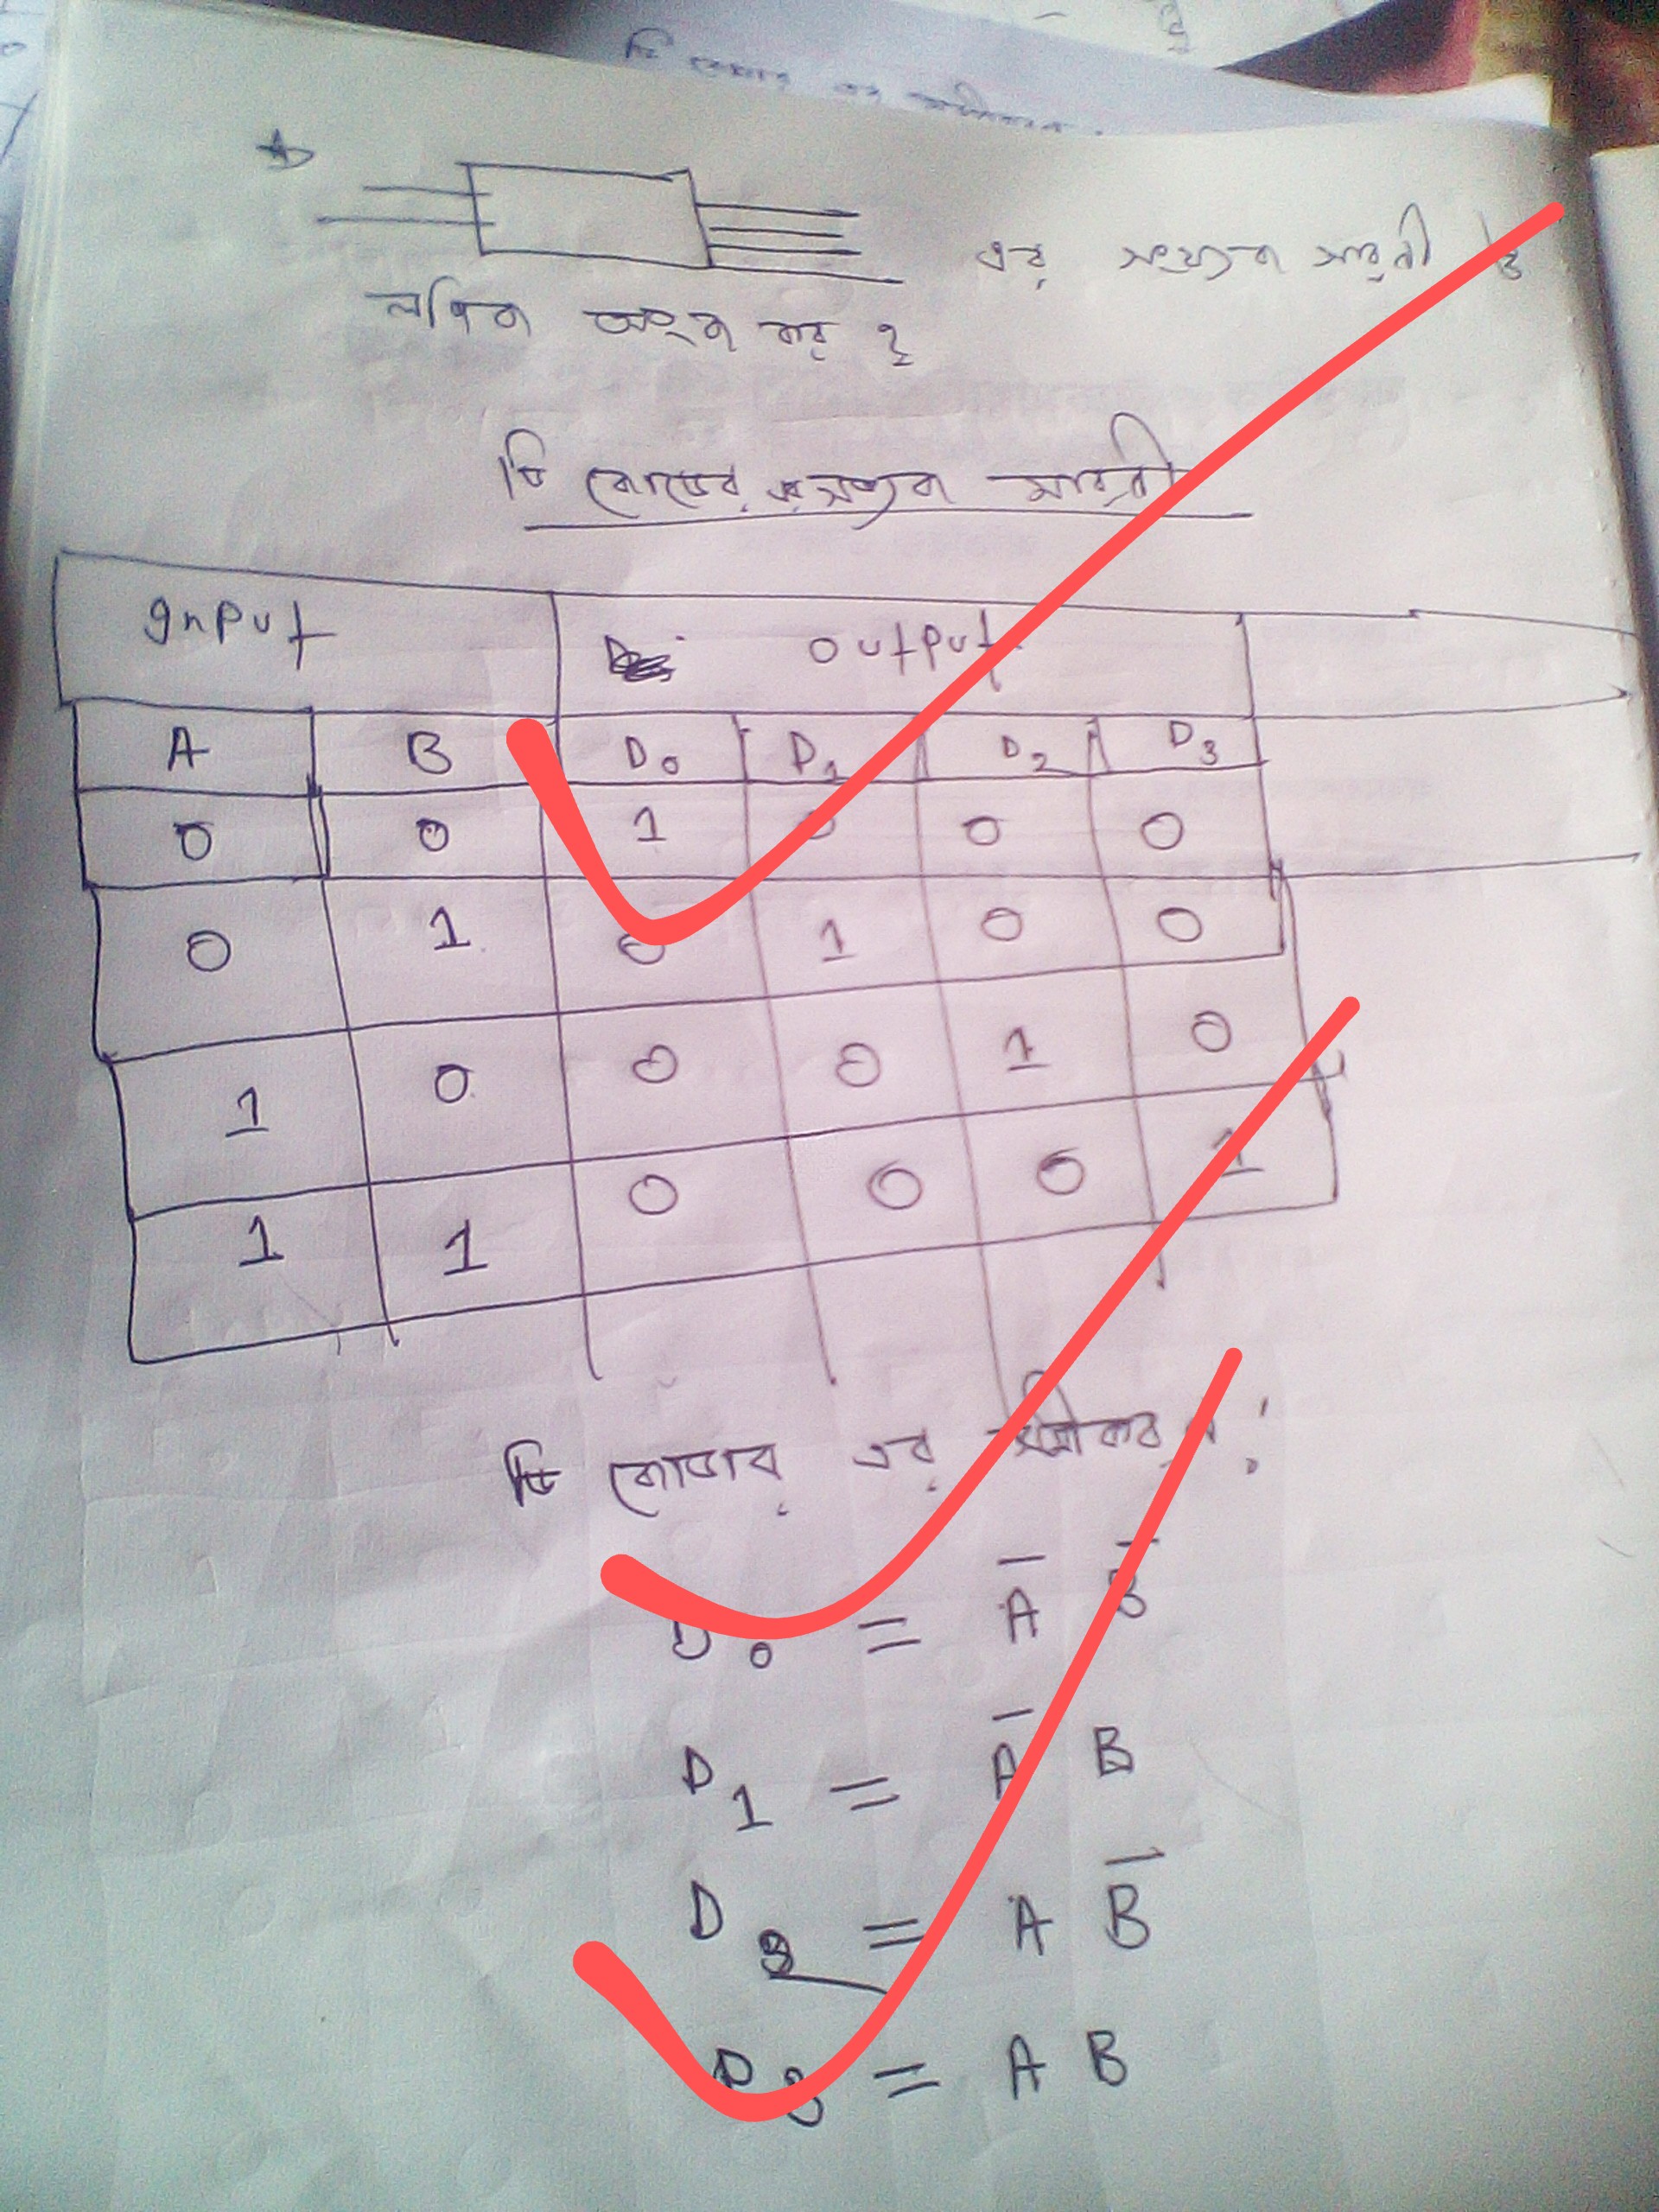 এর সত্যক সারণী ও
লজিক অংকন কর ?
ডি কোডের সত্যক সারণী
Input Output
A B D₀ D₁ D₂ D₃
0 0 1 0 0 0
0 1 0 1 0 0
1 0 0 0 1 0
1 1 0 0 0 1
ডি কোডার এর সমীকরণ:
D₀ = A̅ B̅
D₁ = A̅ B
D₂ = A B̅
D₃ = A B